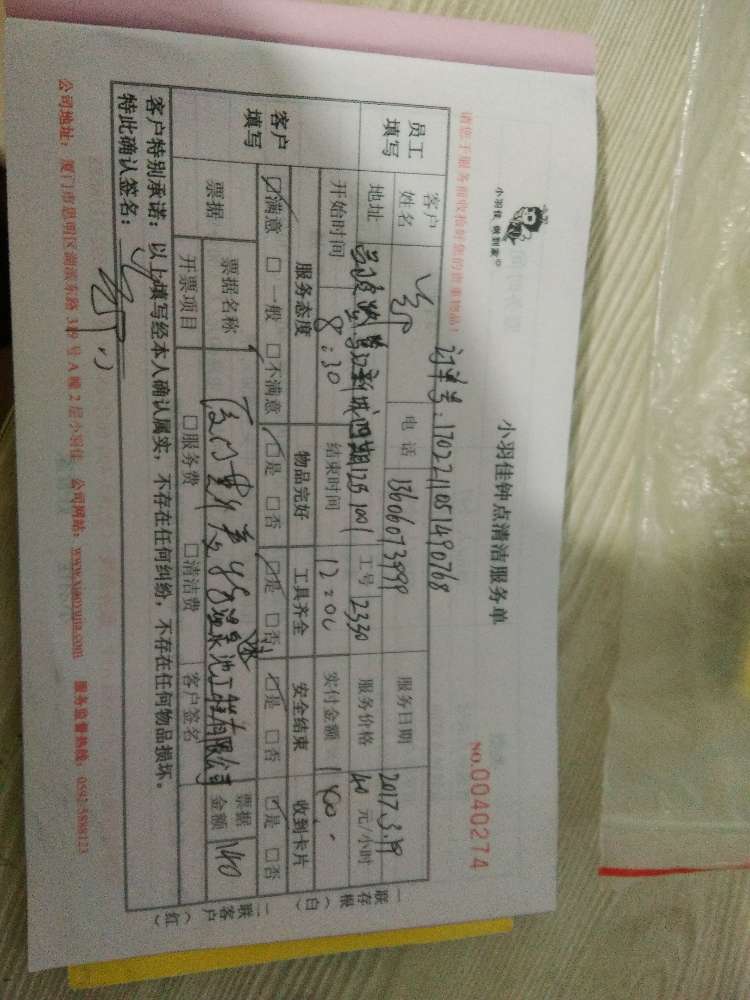 小羽佳 做到家
小羽佳钟点清洁服务单
NO.0040274
请您于服务前收拾好您的贵重物品!
订单号:1702211051490768
员工填写
客户姓名
电话 13606073999
服务日期 2017.3.19
地址
新城四期125 1001
工号 2330
服务价格 40 元/小时
开始时间 8:30
结束时间 12:00
实付金额
客户填写
服务态度 物品完好 工具齐全 安全结束 收到卡片
☑满意 □一般 □不满意 ☑是 □否 ☑是 □否 ☑是 □否 ☑是 □否
票据
票据名称 厦门 温泉泳池工程有限公司
票据金额 140
开票项目 □服务费 □清洁费 客户签名
客户特别承诺:以上填写经本人确认属实,不存在任何纠纷,不存在任何物品损坏。
特此确认签名:
一联存根(白)
二联客户(红)
公司地址:厦门市思明区湖滨东路319号A幢2层小羽佳 公司网站:www.xiaoyujia.com 服务监督热线:0592-5888123